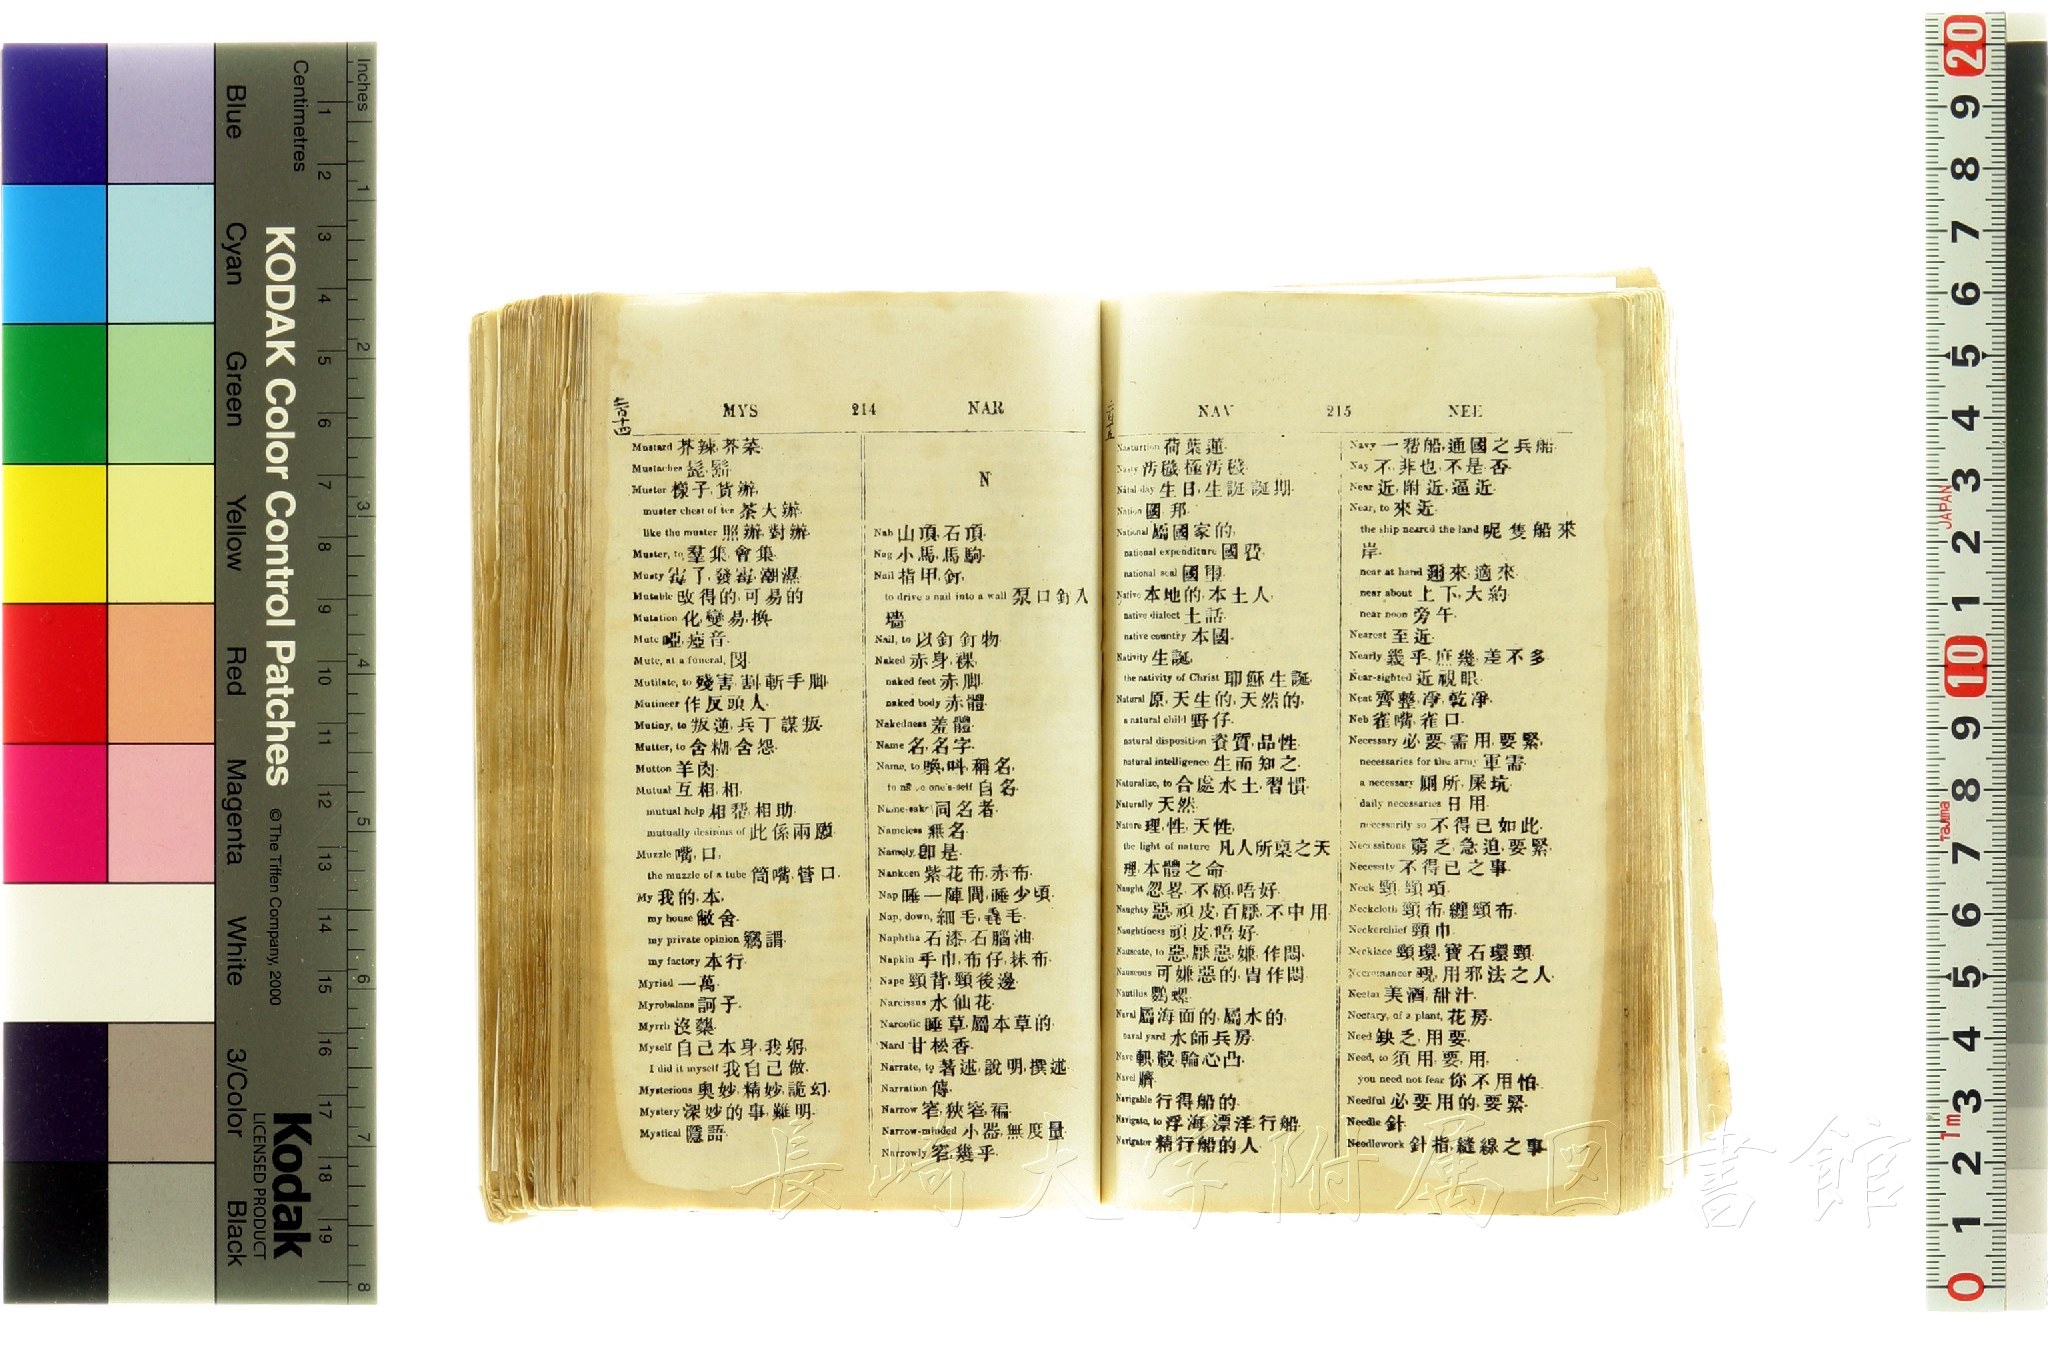 Inches
Centimetres
KODAK Color Control Patches
© The Tiffen Company, 2000
Kodak
LICENSED PRODUCT
Blue
Cyan
Green
Yellow
Red
Magenta
White
3/Color
Black
二百十四
MYS 214 NAR
Mustard 芥辣,芥菜.
Mustaches 髭,鬍.
Muster 樣子,貨辦,
muster chest of tea 茶大辦.
like the muster 照辦,對辦.
Muster, to 羣集,會集.
Musty 霉了,發霉,潮濕.
Mutable 改得的,可易的
Mutation 化,變易,換.
Mute 啞,瘂音.
Mute, at a funeral,
Mutilate, to 殘害,割,斬手脚.
Mutineer 作反頭人.
Mutiny, to 叛逆,兵丁謀叛.
Mutter, to 含糊,含怨.
Mutton 羊肉.
Mutual 互相,相,
mutual help 相幇,相助.
mutually desirous of 此係兩願.
Muzzle 嘴,口,
the muzzle of a tube 筒嘴,管口.
My 我的,本,
my house 敝舍.
my private opinion 竊謂.
my factory 本行.
Myriad 一萬.
Myrobalans 訶子.
Myrrh 沒藥.
Myself 自己,本身,我躬,
I did it myself 我自己做.
Mysterious 奧妙,精妙,詭幻.
Mystery 深妙的事,難明.
Mystical 隱語.
N
Nab 山頂,石頂.
Nag 小馬,馬駒.
Nail 指甲,釘,
to drive a nail into a wall 泵口釘入
墻.
Nail, to 以釘釘物.
Naked 赤身,裸,
naked feet 赤脚.
naked body 赤體.
Nakedness 羞體.
Name 名,名字.
Name, to 喚,叫,稱名,
to name one's-self 自名.
Name-sake 同名者.
Nameless 無名.
Namely, 卽是.
Nankeen 紫花布,赤布.
Nap 睡一陣間,睡少頃.
Nap, down, 細毛,毳毛.
Naphtha 石漆,石腦油.
Napkin 手巾,布仔,抹布.
Nape 頸背,頸後邊.
Narcissus 水仙花.
Narcotic 睡草,屬本草的.
Nard 甘松香.
Narrate, to 著述,說明,撰述.
Narration 傳.
Narrow 窄,狹窄,褊.
Narrow-minded 小器,無度量.
Narrowly 窄,幾乎.
二百十五
NAV 215 NEE
Nasturtion 荷葉蓮.
Nasty 汚穢,極汚穢.
Natal day 生日,生誕,誕期.
Nation 國,邦.
National 屬國家的,
national expenditure 國費.
national seal 國璽.
Native 本地的,本土人,
native dialect 土話.
native country 本國.
Nativity 生誕,
the nativity of Christ 耶穌生誕.
Natural 原,天生的,天然的,
a natural child 野仔.
natural disposition 資質,品性.
natural intelligence 生而知之.
Naturalize, to 合處水土,習慣.
Naturally 天然.
Nature 理,性,天性,
the light of nature 凡人所稟之天
理,本體之命.
Naught 忽畧,不顧,唔好.
Naughty 惡,頑皮,百厭,不中用.
Naughtiness 頑皮,唔好.
Nauseate, to 惡,厭惡,嫌,作悶.
Nauseous 可嫌惡的,胃作悶.
Nautilus 鸚螺.
Naval 屬海面的,屬水的,
naval yard 水師兵房.
Nave 軹,轂,輪心凸.
Navel 臍.
Navigable 行得船的.
Navigate, to 浮海,漂洋,行船.
Navigator 精行船的人.
Navy 一幇船,通國之兵船.
Nay 不,非也,不是,否.
Near 近,附近,逼近.
Near, to 來近.
the ship neared the land 呢隻船來
岸.
near at hand 邇來,適來.
near about 上下,大約.
near noon 旁午.
Nearest 至近.
Nearly 幾乎,庶幾,差不多.
Near-sighted 近視眼.
Neat 齊整,淨,乾凈.
Neb 雀嘴,雀口.
Necessary 必要,需用,要緊,
necessaries for the army 軍需.
a necessary 厠所,屎坑.
daily necessaries 日用.
necessarily so 不得已如此.
Necessitous 窮乏,急迫,要緊.
Necessity 不得已之事.
Neck 頸,頸項.
Neckcloth 頸布,纏頸布.
Neckerchief 頸巾.
Necklace 頸環,寶石環頸.
Necromancer 覡,用邪法之人.
Nectar 美酒,甜汁.
Nectary, of a plant, 花房.
Need 缺乏,用要.
Need, to 須用,要,用,
you need not fear 你不用怕.
Needful 必要用的,要緊.
Needle 針.
Needlework 針指,縫線之事.
長崎大学附属図書館
JAPAN
Tajima
1m